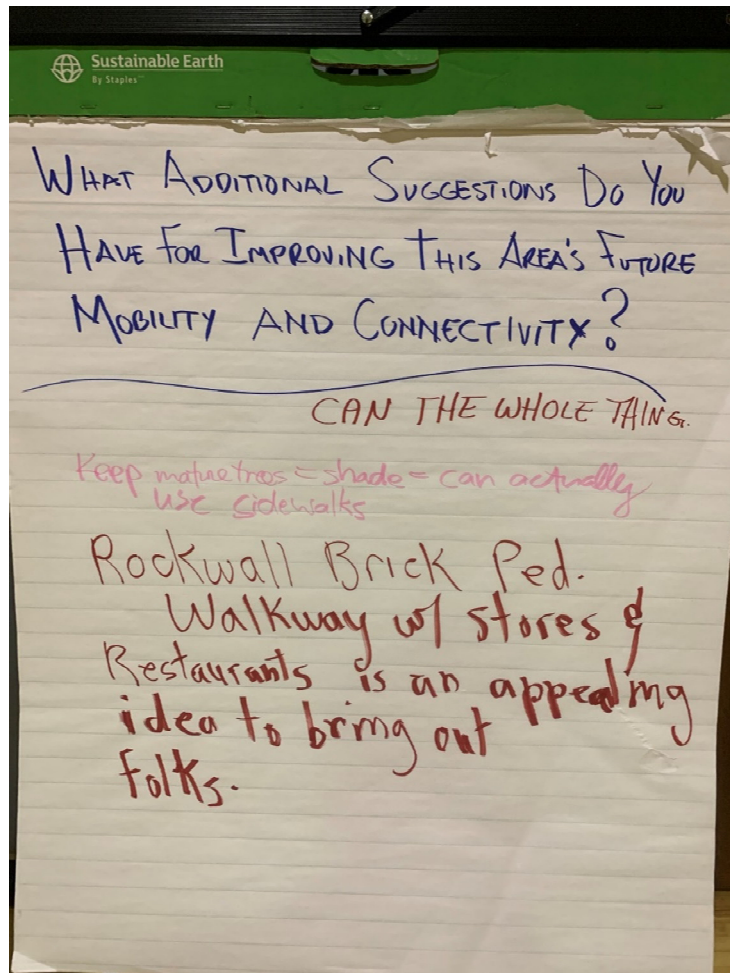 Sustainable Earth
By Staples™
WHAT ADDITIONAL SUGGESTIONS DO YOU
HAVE FOR IMPROVING THIS AREA'S FUTURE
MOBILITY AND CONNECTIVITY?
CAN THE WHOLE THING.
Keep mature trees = shade = can actually
use sidewalks
Rockwall Brick Ped.
Walkway w/ stores &
Restaurants is an appealing
idea to bring out
folks.